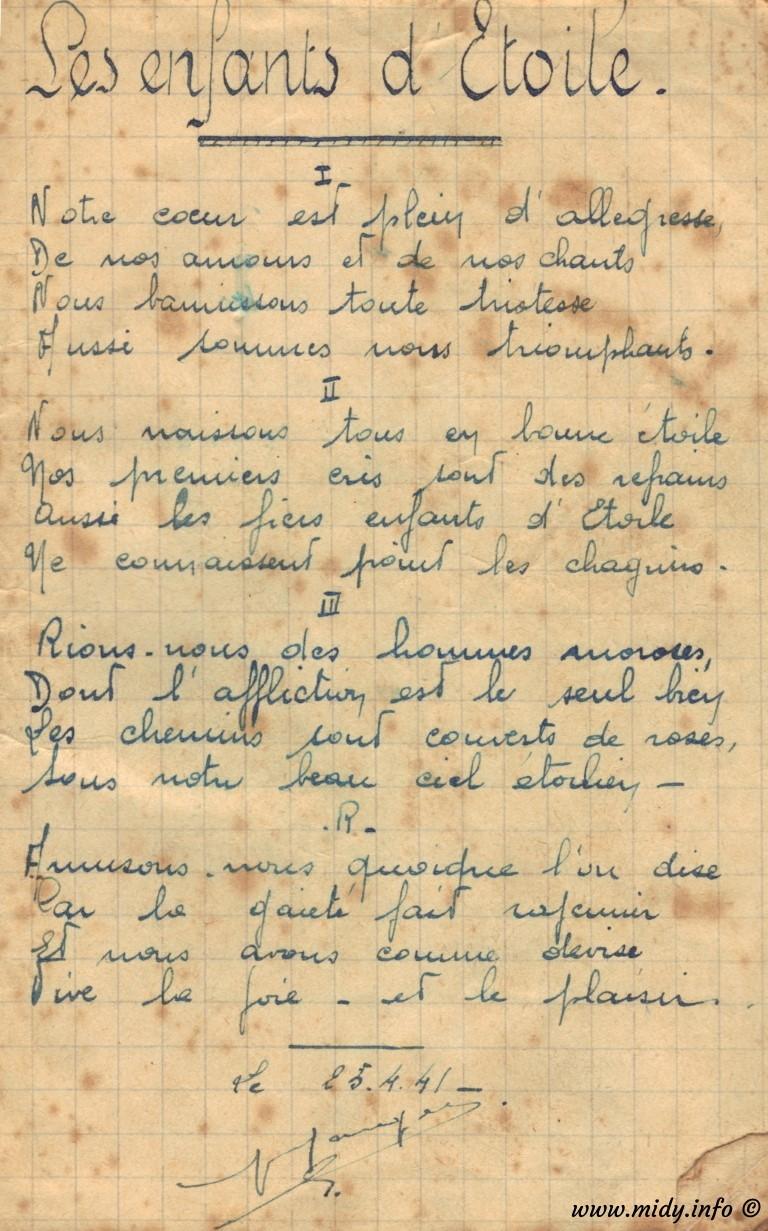 Les enfants d'Etoile.
I
Notre coeur est plein d'allegresse,
De nos amours et de nos chants
Nous banissons toute tristesse
Aussi sommes nous triomphants.
II
Nous naissons tous en bonne étoile
Nos premiers cris sont des refrains
Aussi les fiers enfants d'Etoile
Ne connaissent point les chagrins.
III
Rions-nous des hommes moroses,
Dont l'affliction est le seul bien
Les chemins sont couverts de roses,
Sous notre beau ciel étoilien -
.R-
Amusons-nous quoique l'on dise
Car la gaieté fait rajeunir
Et nous avons comme devise
Vive la joie - et le plaisir.
Le 25.4.41-
www.midy.info ©